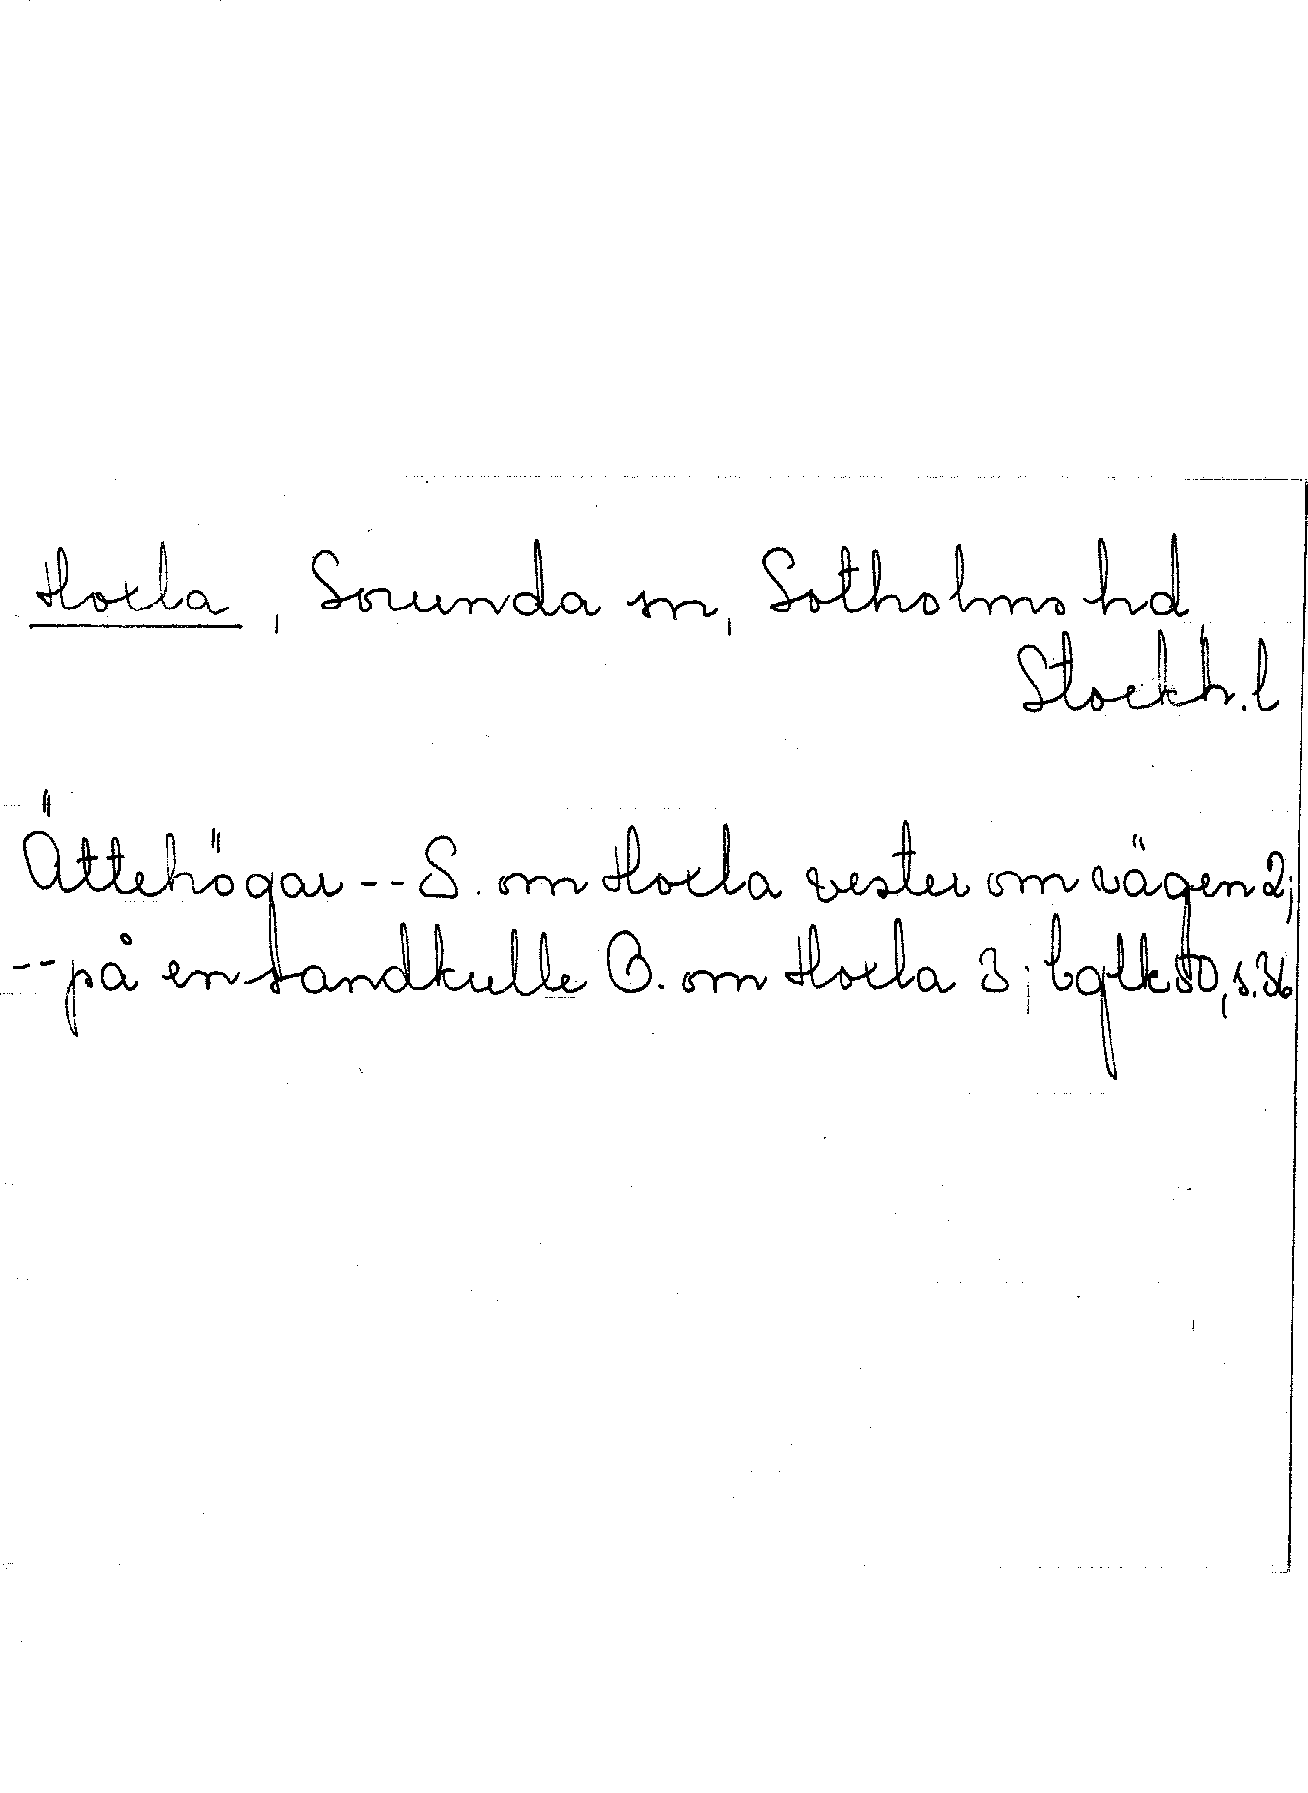 Hoxla, Sorunda sn, Sotholms hd
Stockh.l
Ättehögar -- S. om Hoxla vester om vägen 2;
-- på en sandkulle Ö. om Hoxla 3; bglk 50, s. 36